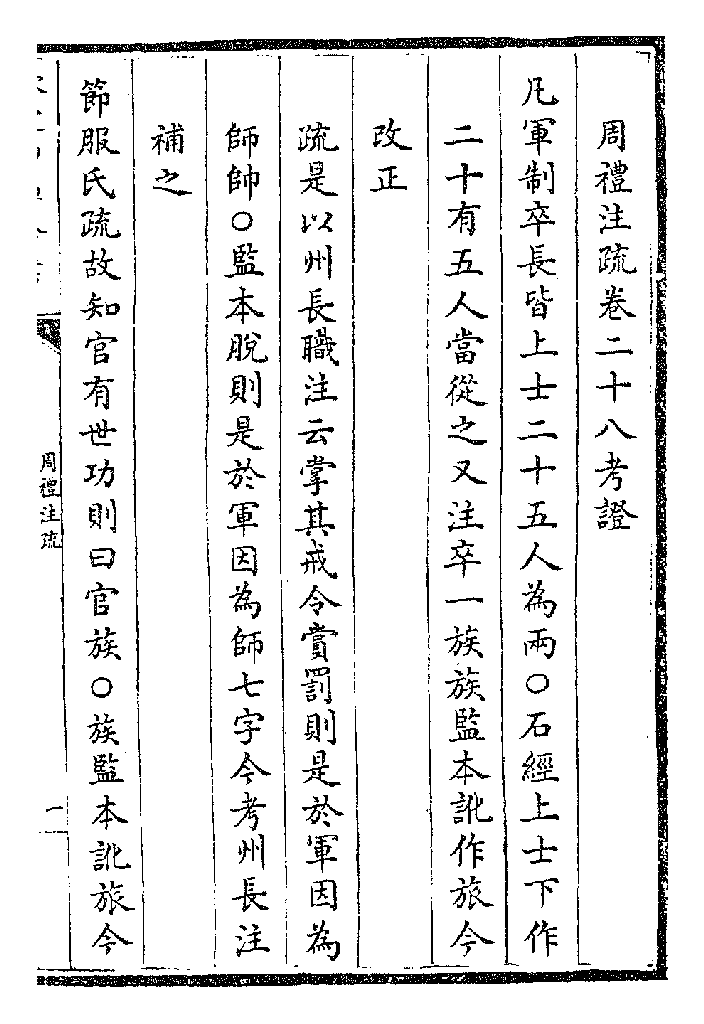 周禮注疏卷二十八考證
凡軍制卒長皆上士二十五人為兩○石經上士下作
二十有五人當從之又注卒一族族監本訛作旅今
改正
疏是以州長職注云掌其戒令賞罰則是於軍因為
師帥○監本脫則是於軍因為師七字今考州長注
補之
節服氏疏故知官有世功則曰官族○族監本訛旅今
周禮注疏
一